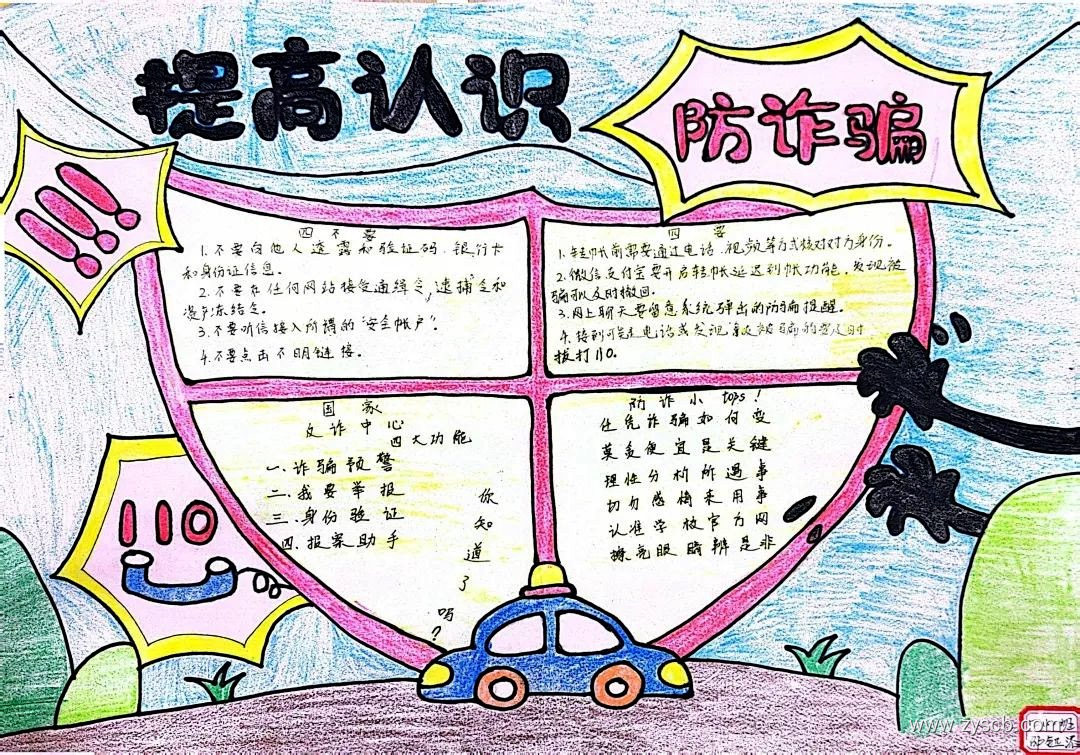 提高认识
防诈骗
!!!
四不要
1.不要向他人透露和验证码、银行卡
和身份证信息。
2.不要在任何网站接受通缉令,逮捕令和
资产冻结令。
3.不要听信接入所谓的"安全帐户"。
4.不要点击不明链接。
四 要
1.转帐前需要通过电话、视频等方式核对对方身份。
2.微信支付宝要开启转帐延迟到帐功能,发现被
骗可及时撤回。
3.网上聊天要留意系统弹出的防骗提醒。
4.接到可疑电话或发现亲友被骗的要及时
拨打110。
国家
反诈中心
四大功能
一.诈骗预警
二.我要举报
三.身份验证
四.报案助手
你知道了吗?
防诈小tops!
任凭诈骗如何变
莫贪便宜是关键
理性分析所遇事
切勿感情来用事
认准学校官方网
擦亮眼睛辨是非
110
www.zyscb.com